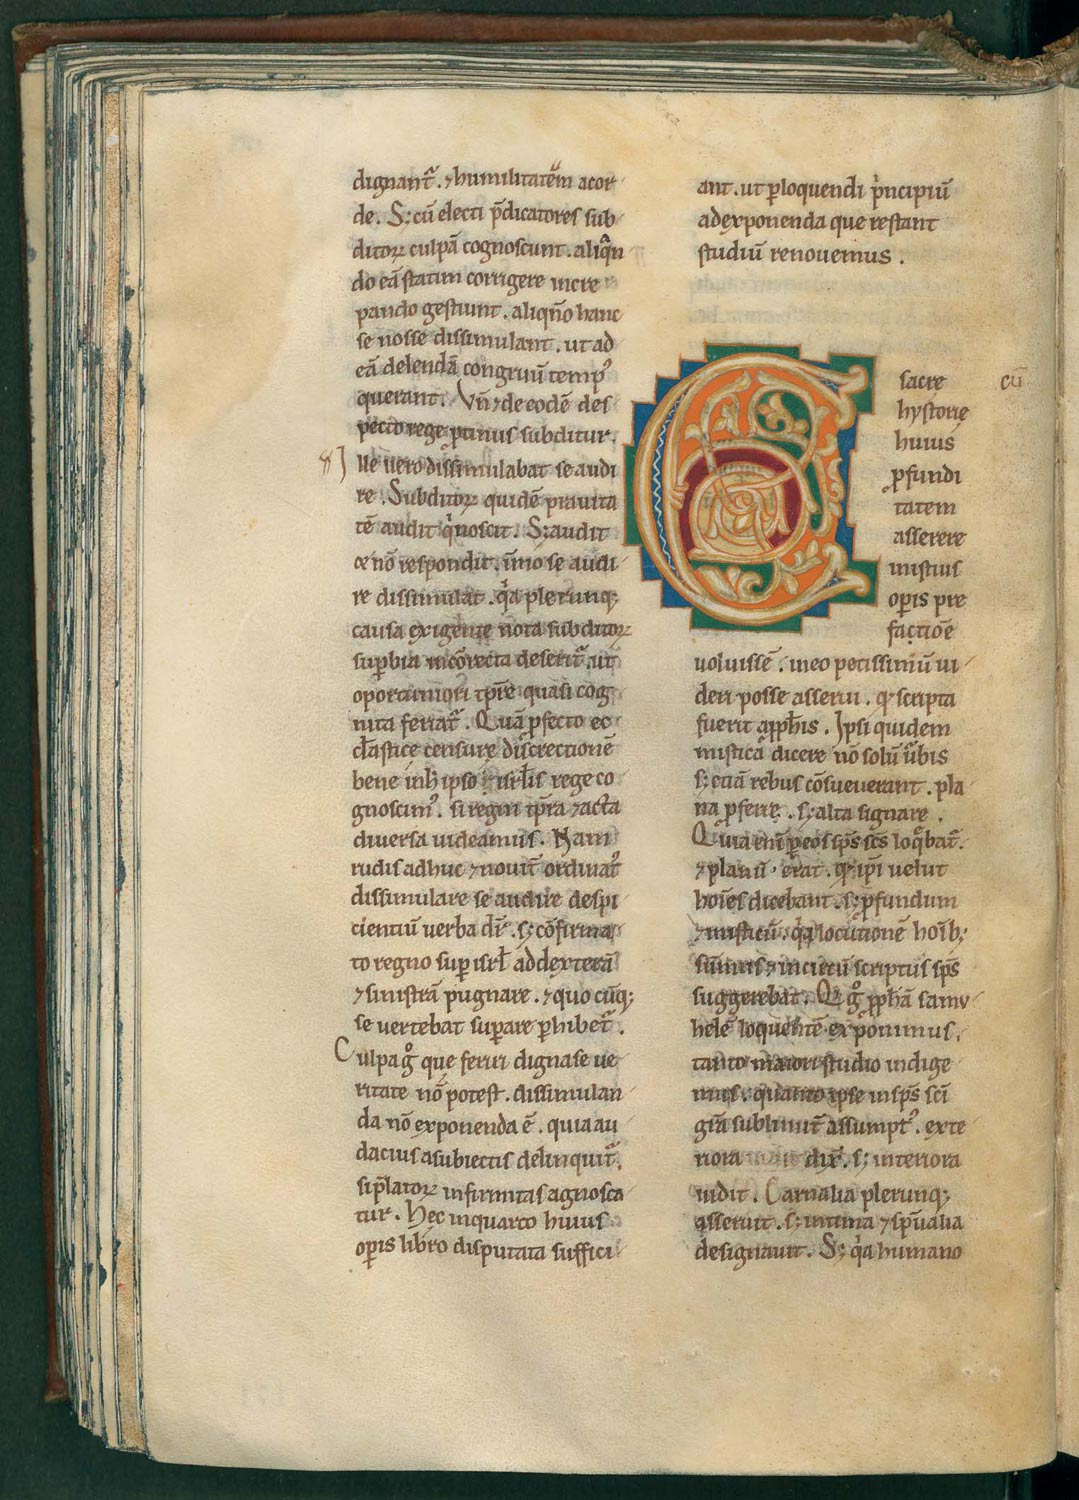 dignant᷑. ⁊ humilitatẽm a cor
de. S; cũ electi p̄dicatores sub
ditoꝝ culpã cognoscunt. aliq̃n
do eã statim corrigere incre
pando gestiunt. aliqño hanc
se nosse dissimulant. ut ad
eã delendã congruũ tempꝰ
querant. Vñ ⁊ de eodẽ des
pecto rege ꝓtinus subditur.
Ille uero dissimulabat se audi
re. Subditoꝝ quidẽ prauita
tẽ audit q̇ noscit. S; audit
nõ respondit. im̄o se audi
re dissimulat. q̇a plerunq;
causa exigente nota subditoꝝ
suꝑbia incõrecta deserit᷑. ut
oportuniori tp̄re quasi cog
nita feriat᷑. Quã ꝓfecto ec
cl̄astice censurę discrectionẽ
bene in h̓ ipso isrl̄is rege co
gnoscimꝰ. si regni tp̄ra ⁊ acta
diuersa uideamus. Nam
rudis adhuc ⁊ nouit᷑ ordinatꝰ
dissimulare se audire despi
cientiũ uerba dr̄. s; cõfirma
to regno suꝑ isrl̄ ad dexterã
⁊ sinistrã pugnare. ⁊ quo cũq;
se uertebat suꝑare ꝑhibet᷑.
Culpa g̊ que feriri digna se ue
ritate nõ potest. dissimulan
da nõ exponenda ẽ. quia au
dacius a subiectis delinquit᷑.
si p̄latoꝝ infirmitas agnosca
tur. Hec in quarto huius
oꝑis libro disputata suffici
ant. ut ꝑ loquendi p̓ncipiũ
ad exponenda que restant
studiũ renouemus.
cũ
sacre
hystorie
huius
ꝓfundi
tatem
asserere
in istius
oꝑis pre
factiõe
uoluissẽ. in eo potissimũ ui
deri posse asserui. qꝫ scripta
fuerit a ꝓph̄is. Ipsi quidem
misticã dicere nõ solũ ũbis
s; etiã rebus cõsueuerant. pla
na ꝓferre. s; alta signare.
Quia eni᷑ ꝑ eos sp̄s sc̄s loq̄bat᷑.
⁊ planũ erat. qꝫ ip̄i uelut
hoi᷑es dicebant. s; ꝓfundum
⁊ misticũ. q̇a locutionẽ hoi᷑b;
sũmis ⁊ in cietũ scriptis sp̄s
suggerebat. Q g̊ ꝓph̄ã samu
helẽ loquentẽ exponimus,
tanto maiori studio indige
mus. quanto ipse in sp̄s sc̄i
gr̄ã sublimit᷑ assumptꝰ. exte
riora dix̄. s; interiora
uidit. Carnalia plerunq;
asseruit. s; intima ⁊ sp̄ualia
designauit. S; q̇a humano